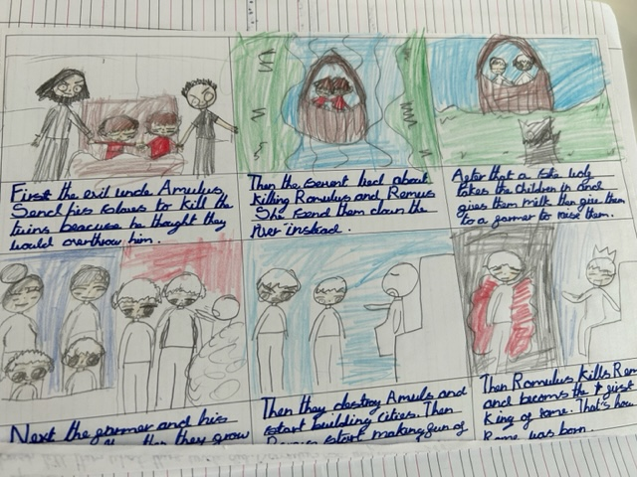 First the evil uncle Amulus,
Send his slaves to kill the
twins beacuse he thought they
would overthrow him.
Then the servent lied about
killing Romulus and Remus
She send them down the
river instead.
After that a she wolf
takes the children in and
gives them milk then give them
to a farmer to raise them.
Next the farmer and his
they grow
Then they destroy Amuls and
start building cities. Then
start making fun of
Then Romulus kills Rem
and becoms the first
King of rome. That's how
Rome was born.